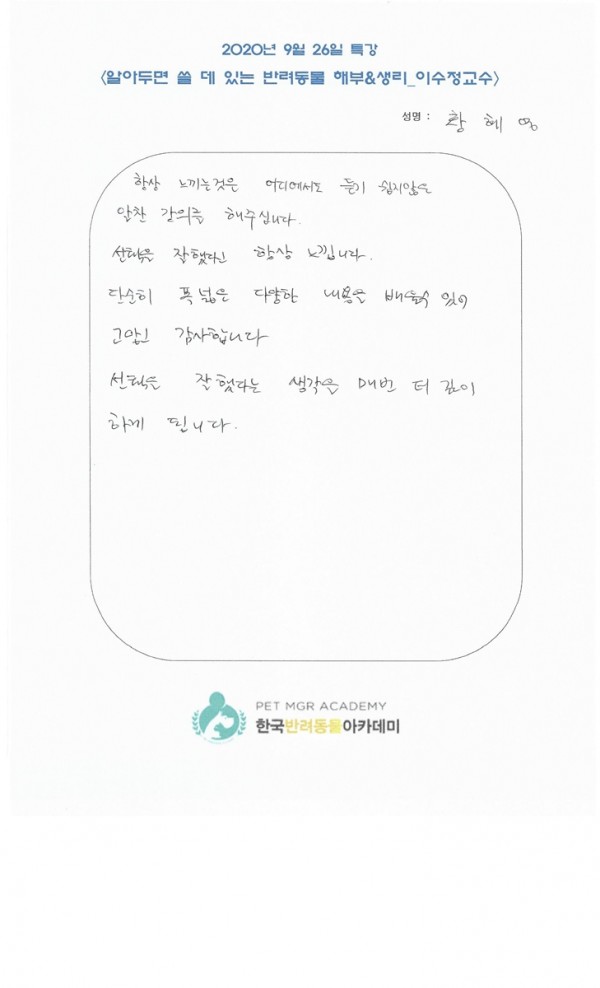 2020년 9월 26일 특강
<알아두면 쓸 데 있는 반려동물 해부&생리_이수정교수>
성명 : 황 혜 영
항상 느끼는것은 어디에서도 듣기 쉽지않은
알찬 강의를 해주십니다.
선택을 잘했다고 항상 느낍니다.
단순히 폭 넓은 다양한 내용을 배울수 있어
고맙고 감사합니다
선택을 잘했다는 생각을 매번 더 깊이
하게 됩니다.
PET MGR ACADEMY
한국반려동물아카데미